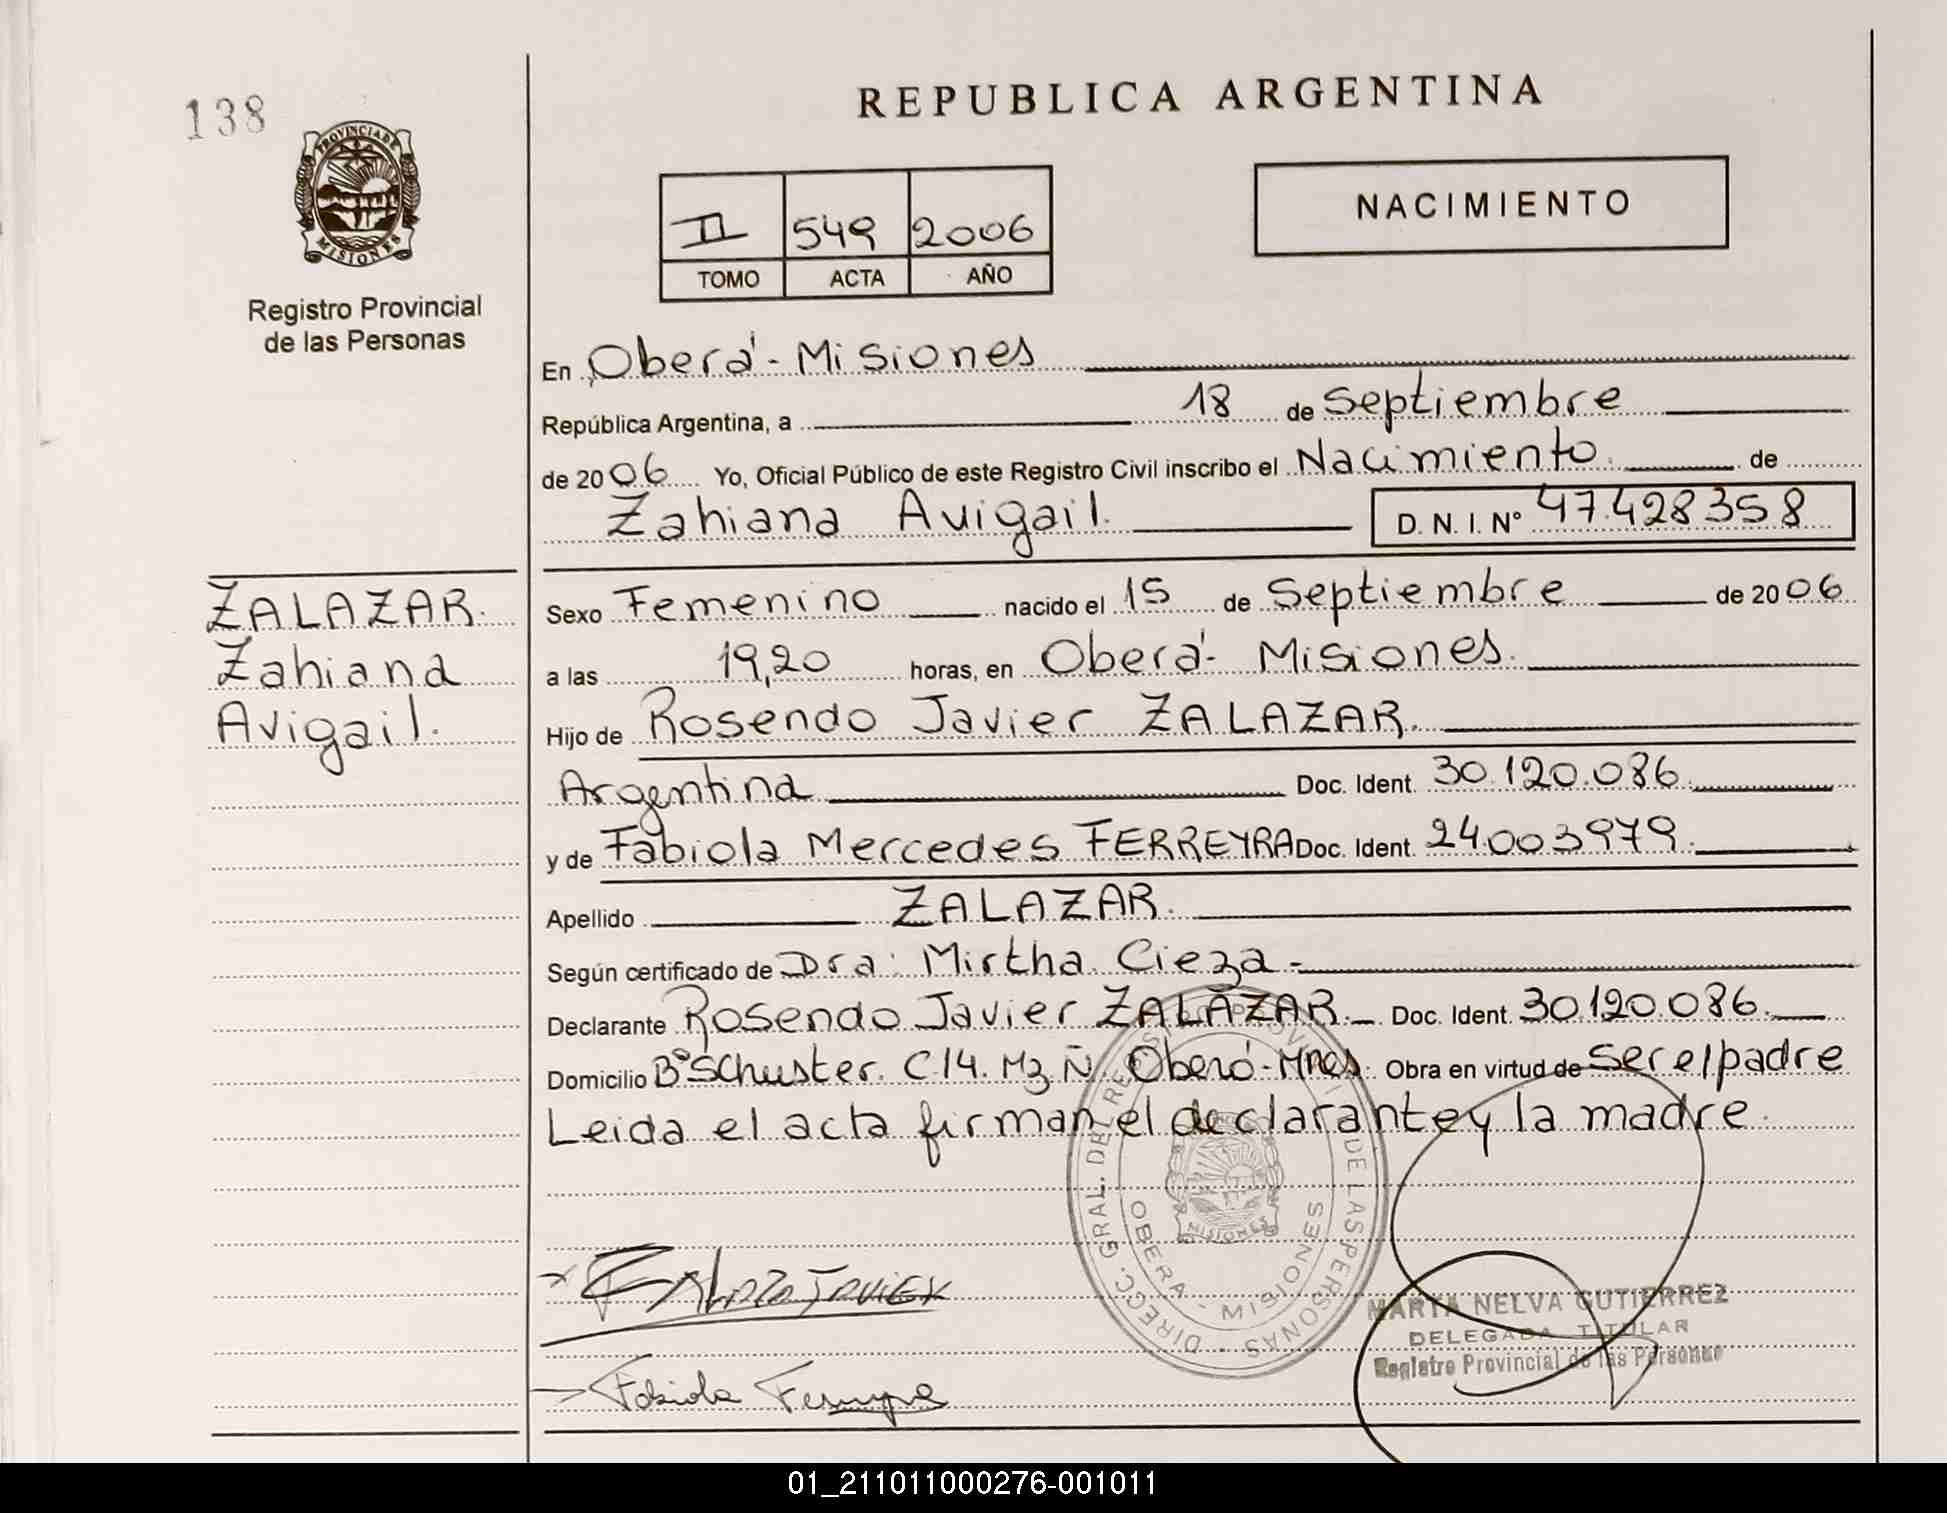 138
PROVINCIA DE
MISIONES
Registro Provincial
de las Personas
REPUBLICA ARGENTINA
II 549 2006
TOMO ACTA AÑO
NACIMIENTO
En Oberá - Misiones
República Argentina, a 18 de Septiembre
de 2006 Yo, Oficial Público de este Registro Civil inscribo el Nacimiento. de
Zahiana Avigail. D. N. I. Nº 47.428358
ZALAZAR.
Zahiana
Avigail.
Sexo Femenino nacido el 15 de Septiembre de 2006
a las 19,20 horas, en Oberá - Misiones.
Hijo de Rosendo Javier ZALAZAR.
Argentina Doc. Ident. 30.120.086.
y de Fabiola Mercedes FERREYRA Doc. Ident. 24.003979.
Apellido ZALAZAR.
Según certificado de Dra: Mirtha Cieza -
Declarante Rosendo Javier ZALAZAR. Doc. Ident. 30.120.086.
Domicilio Bº Schuster. C14. Mz Ñ Oberá - Mnes. Obra en virtud de ser el padre
Leida el acta firman el declarante y la madre.
DIRECC. GRAL. DEL REGISTRO PROVINCIAL DE LAS PERSONAS
OBERA - MISIONES
MISIONES
Javier
Fabiola Ferreyra
MARTA NELVA GUTIERREZ
DELEGADA TITULAR
Registro Provincial de las Personas
01_211011000276-001011